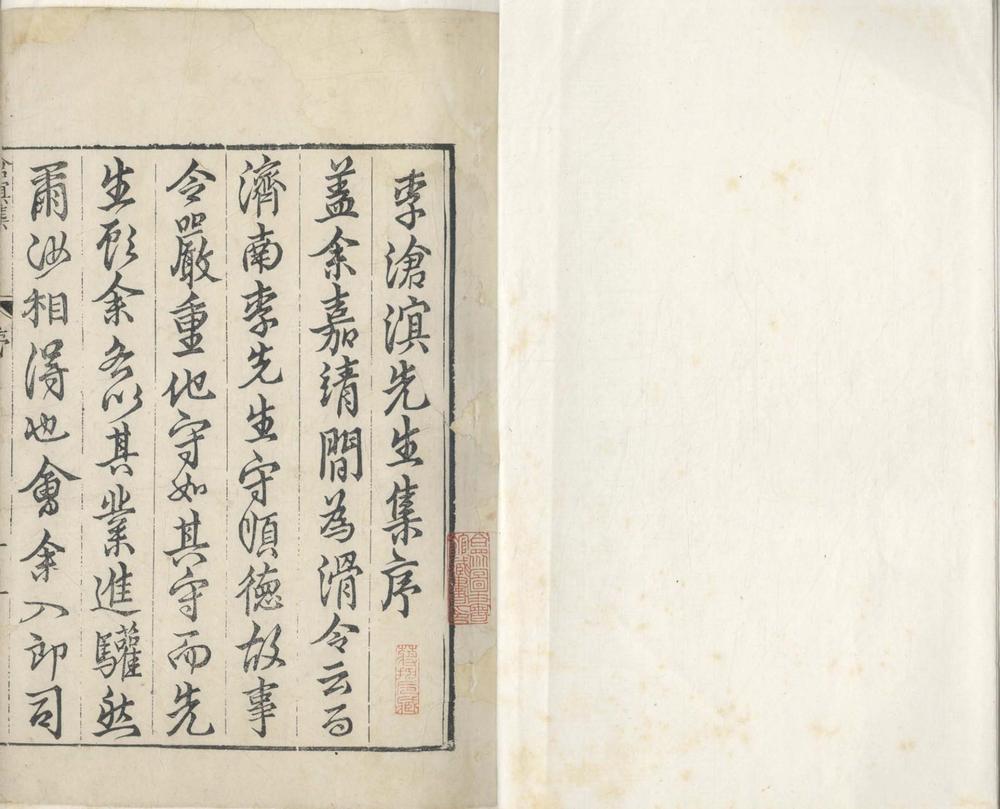 李滄溟先生集序
蓋余嘉靖間為滑令云而
濟南李先生守順德故事
令嚴重他守如其守而先
生於余各以其業進驩然
爾汝相得也會余入郎司
滄溟集
序